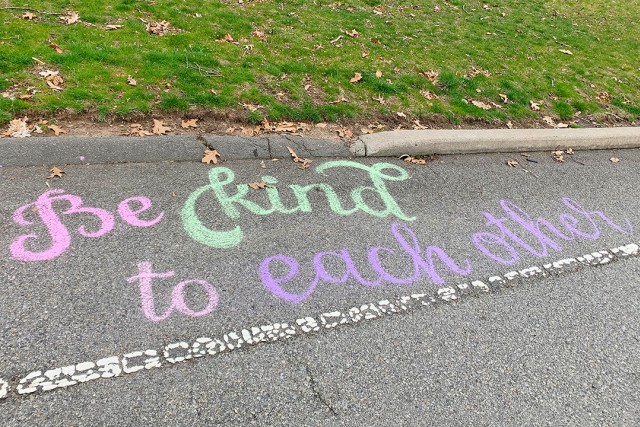 Be kind
to each other